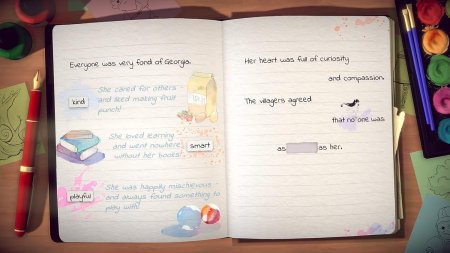 Everyone was very fond of Georgia.
She cared for others
kind
and liked making fruit
punch!
She loved learning
and went nowhere
smart
without her books!
She was happily mischievous
playful
and always found something to
play with!
Her heart was full of curiosity
and compassion.
The villagers agreed
that no one was
as
as her.